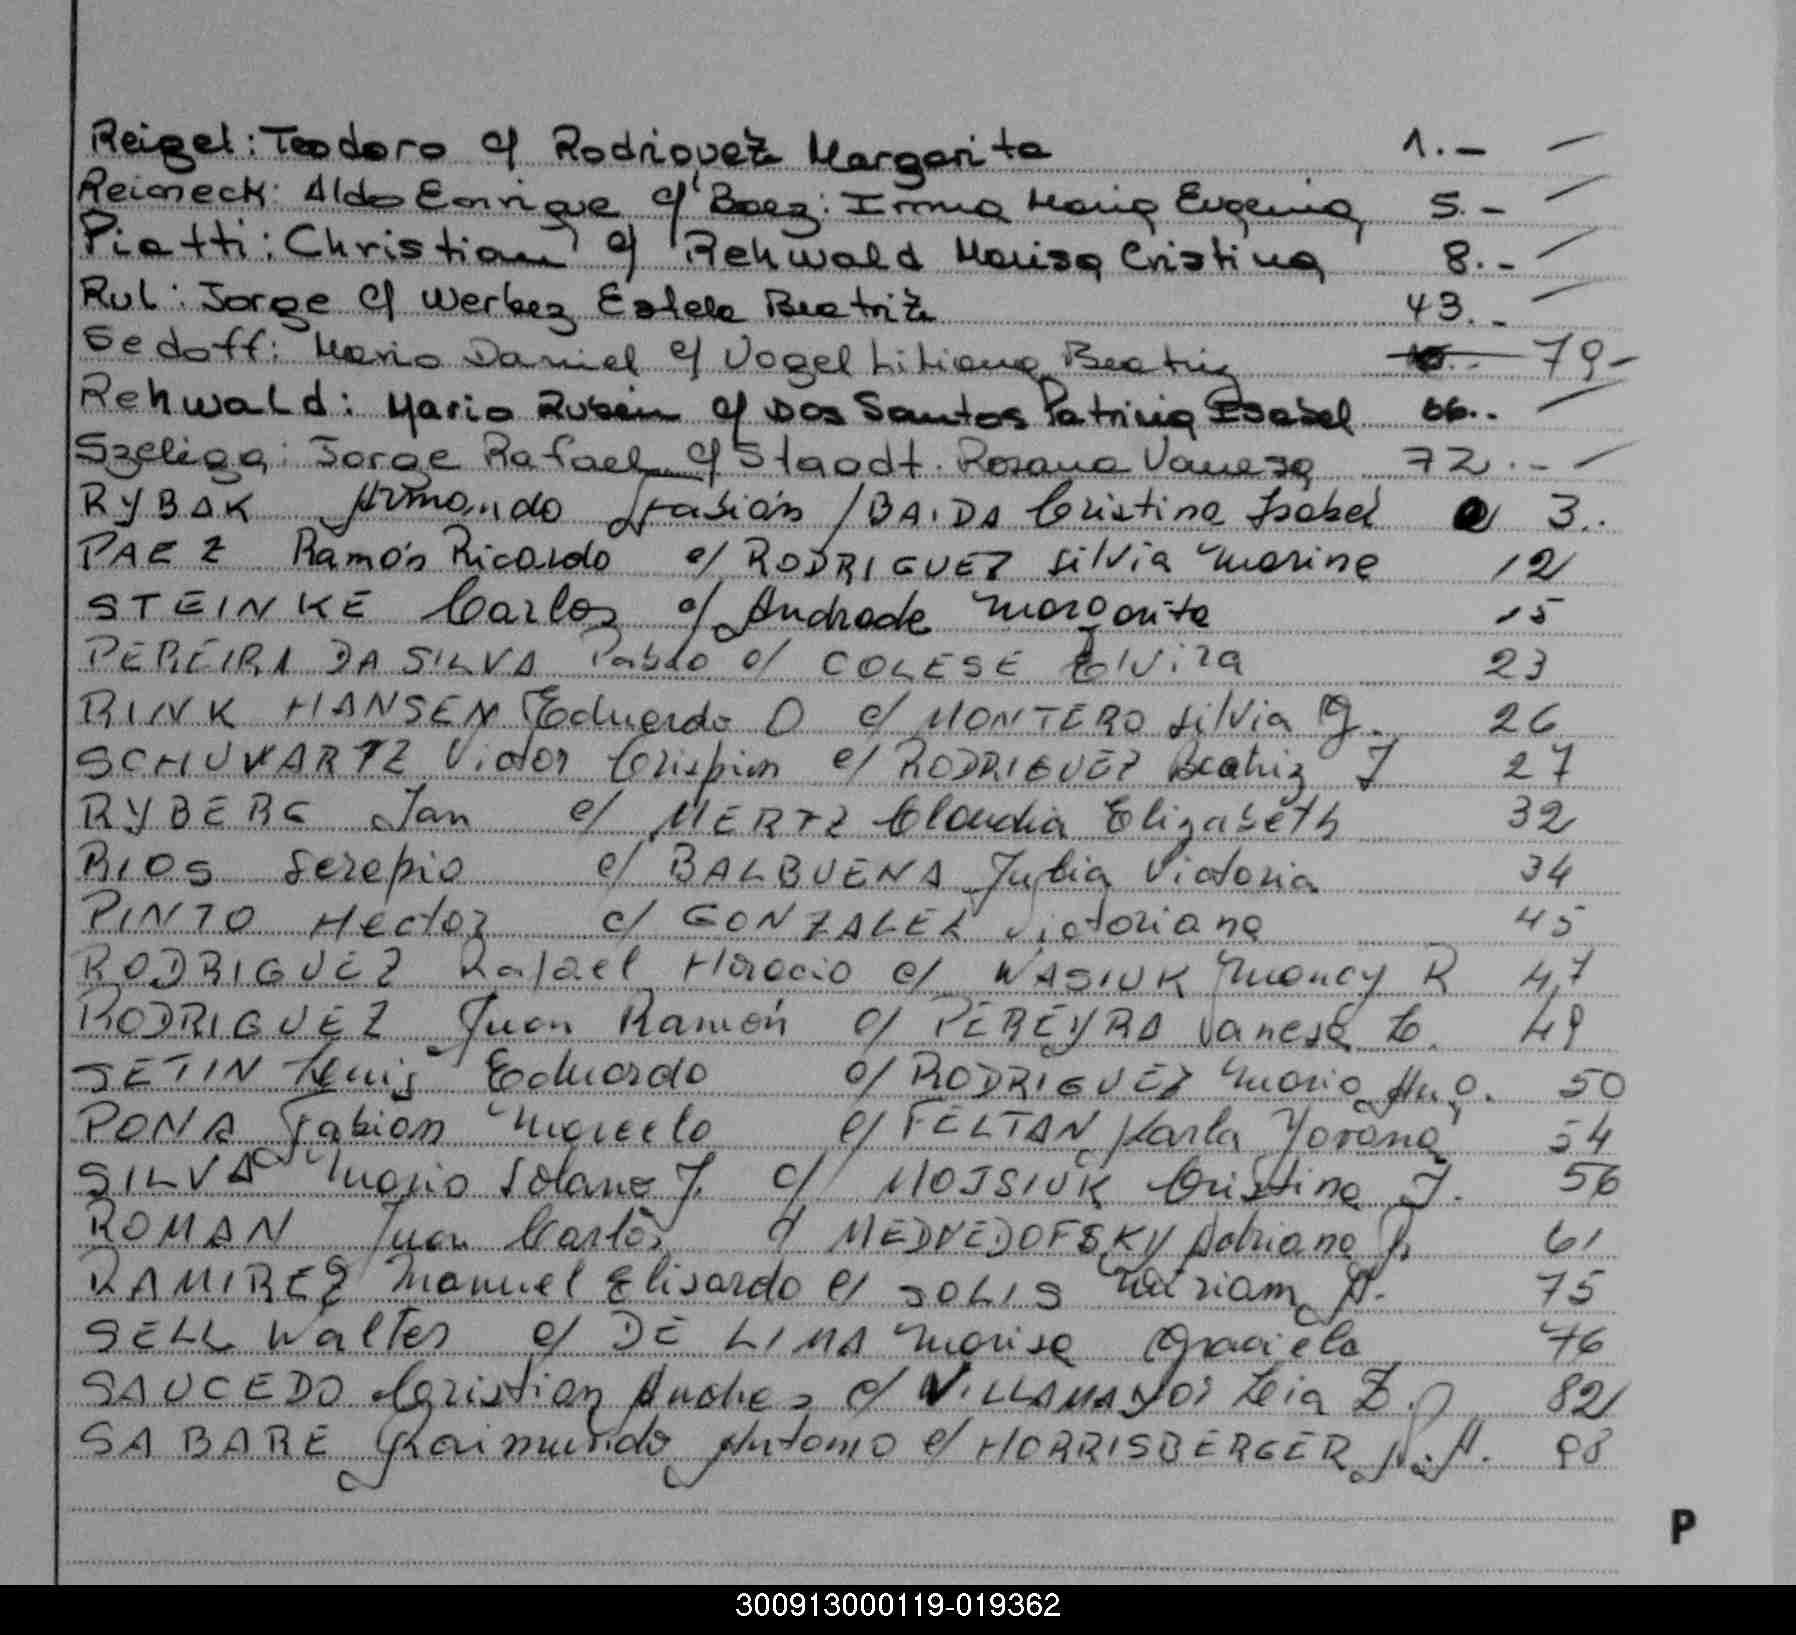 Reigel: Teodoro c/ Rodriguez Margarita 1.-
Reimeck: Aldo Enrique c/ Baez: Irma Maria Eugenia 5.-
Piatti: Christian c/ Rehwald Marisa Cristina 8.-
Rul: Jorge c/ Werbez Estela Beatriz 43.-
Sedoff: Mario Daniel c/ Vogel Liliana Beatriz 79-
Rehwald: Mario Ruben c/ Dos Santos Patricia Isabel 66..
Szeliga: Jorge Rafael c/ Staodt. Rosana Vanesa 72.-
RYBAK Armando Fabián / BAIDA Cristina Isabel 3..
PAEZ Ramón Ricardo c/ RODRIGUEZ Silvia Marina 12
STEINKE Carlos c/ Andrade Margarita 15
PEREIRA DA SILVA Pablo c/ COLESE Elvira 23
RINK HANSEN Eduardo O c/ MONTERO Silvia G. 26
SCHUVARTZ Victor Crispin c/ RODRIGUEZ Beatriz J 27
RYBERG Jan c/ MERTZ Claudia Elizabeth 32
RIOS Serepio c/ BALBUENA Julia Victoria 34
PINTO Hector c/ GONZALEZ Victoriana 45
RODRIGUEZ Rafael Horacio c/ WASIUK Nancy R 47
RODRIGUEZ Juan Ramón c/ PEREYRA Vanesa E. 49
SETIN Luis Eduardo c/ RODRIGUEZ Maria 50
PONA Fabian Marcelo c/ FELTAN Karla Yovana 54
SILVA Mario Solano J. c/ MOJSIUK Cristina J. 56
ROMAN Juan Carlos c/ MEDVEDOFSKY Adriana 61
RAMIREZ Manuel Elisardo c/ SOLIS Miriam A. 75
SELL Walter c/ DE LIMA Marisa Graciela 76
SAUCEDO Cristian Andres c/ VILLAMAYOR Leia Z. 82
SABARE Raimundo Antonio c/ HORRISBERGER N.A. 98
P
300913000119-019362